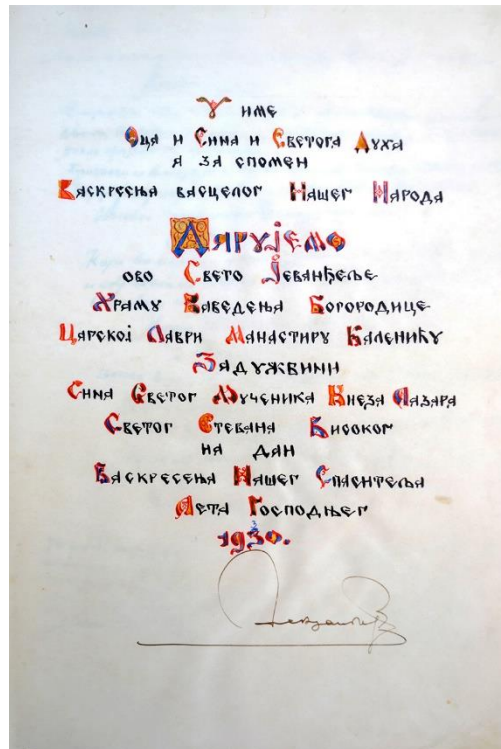 У име
Оца и Сина и Светога Духа
а за спомен
Васкресења васцелог Нашег Народа
Дарујемо
ово Свето Јеванђеље
Храму Ваведења Богородице
Царској Лаври Манастиру Каленићу
Задужбини
Сина Светог Мученика Кнеза Лазара
Светог Стевана Високог
на дан
Васкресења Нашег Спаситеља
Лета Господњег
1930.